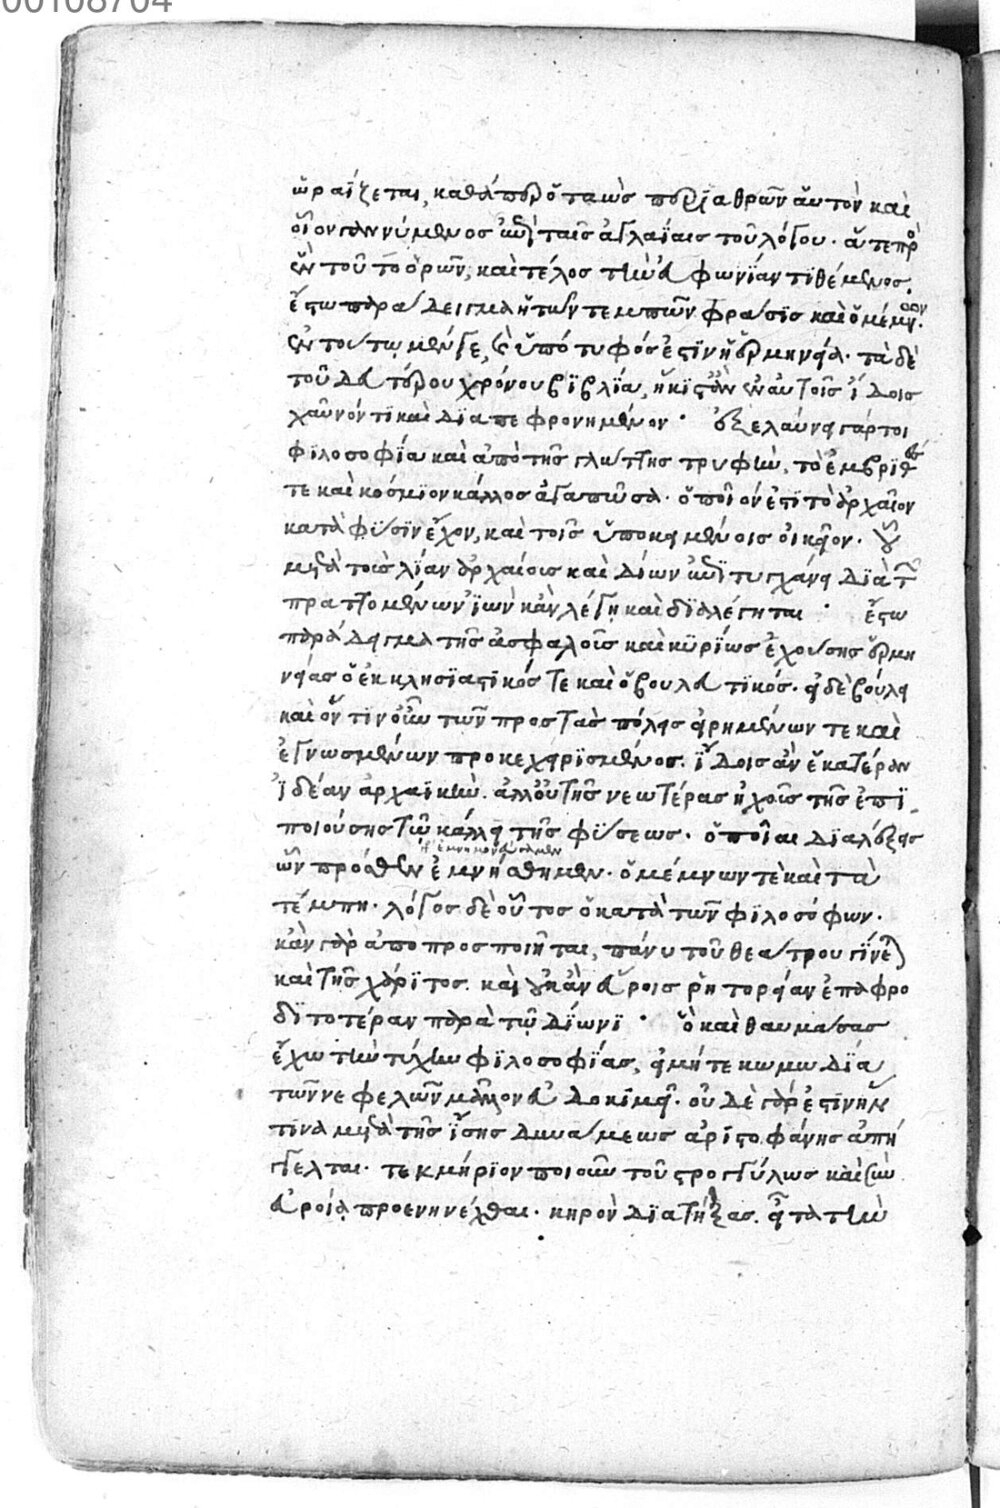 00108704
ὡραΐζεται, καθάπερ ὁ ταὼς περιαθρῶν αὑτὸν καὶ
οἷον γαννύμενος ἐπὶ ταῖς ἀγλαΐαις τοῦ λόγου. ἅτε πρὸ
ἓν τοῦτο ὁρῶν, καὶ τέλος τὴν εὐφωνίαν τιθέμενος.
ἔστω παράδειγμα ἡ τῶν τεμπῶν φράσις καὶ ὁ μέμνων.
ἐν τούτῳ μέν γε, καὶ ὑπότυφός ἐστιν ἡ ἑρμηνεία. τὰ δὲ
τοῦ δευτέρου χρόνου βιβλία, ἥκιστα ἂν ἐν αὐτοῖς ἴδοις
χαῦνόν τι καὶ διαπεφρονημένον. ἐξελαύνει γάρ τοι
φιλοσοφία καὶ ἀπὸ τῆς γλώττης τρυφὴν, τὸ ἐμβριθές
τε καὶ κόσμιον κάλλος ἀγαπῶσα. ὁποῖόν ἐστι τὸ ἀρχαῖον
κατὰ φύσιν ἔχον, καὶ τοῖς ὑποκειμένοις οἰκεῖον. οὗ
μετὰ τοὺς λίαν ἀρχαίους καὶ δίων ἐπιτυγχάνει διὰ τῶν
πραττομένων ἰὼν κἂν λέγῃ καὶ διαλέγηται. ἔστω
παράδειγμα τῆς ἀσφαλοῦς καὶ κυρίως ἐχούσης ἑρμη
νείας ὁ ἐκκλησιαστικός τε καὶ ὁ βουλευτικός. εἰ δὲ βούλει
καὶ ὅντιν οὖν τῶν πρὸς τὰς πόλεις εἰρημένων τε καὶ
ἐγνωσμένων προκεχειρισμένος. ἴδοις ἂν ἑκατέραν
ἰδέαν ἀρχαϊκὴν. ἀλλ' οὐ τῆς νεωτέρας ἠχοῦς τῆς ἐπι
ποιούσης τῷ κάλλει τῆς φύσεως. ὁποῖαι διαλέξεις
ὧν πρόσθεν ἐμνήσθημεν. ὁ μέμνων τὲ καὶ τὰ
τέμπη. λόγος δὲ οὗτος ὁ κατὰ τῶν φιλοσόφων.
κἂν γὰρ ἀποπροσποιῆται, πάνυ τοῦ θεάτρου γίνεται
καὶ τῆς χάριτος. καὶ οὐκ ἂν εὕροις ῥητορείαν ἐπαφρο
διτοτέραν παρὰ τῷ δίωνι. ὃ καὶ θαυμάσας
ἔχω τὴν τύχην φιλοσοφίας, εἰ μήτε κωμῳδία
τῶν νεφελῶν μᾶλλον εὐδοκιμεῖ. οὐδὲ γάρ ἐστιν ἥν
τινα μετὰ τῆς ἴσης δυνάμεως ἀριστοφάνης ἀπήγ
γελται. τεκμήριον ποιοῦ τοῦ στρογγύλως καὶ σὺν
εὐροίᾳ προενηνέχθαι. κηρὸν διατήξας. εἶτα τὴν